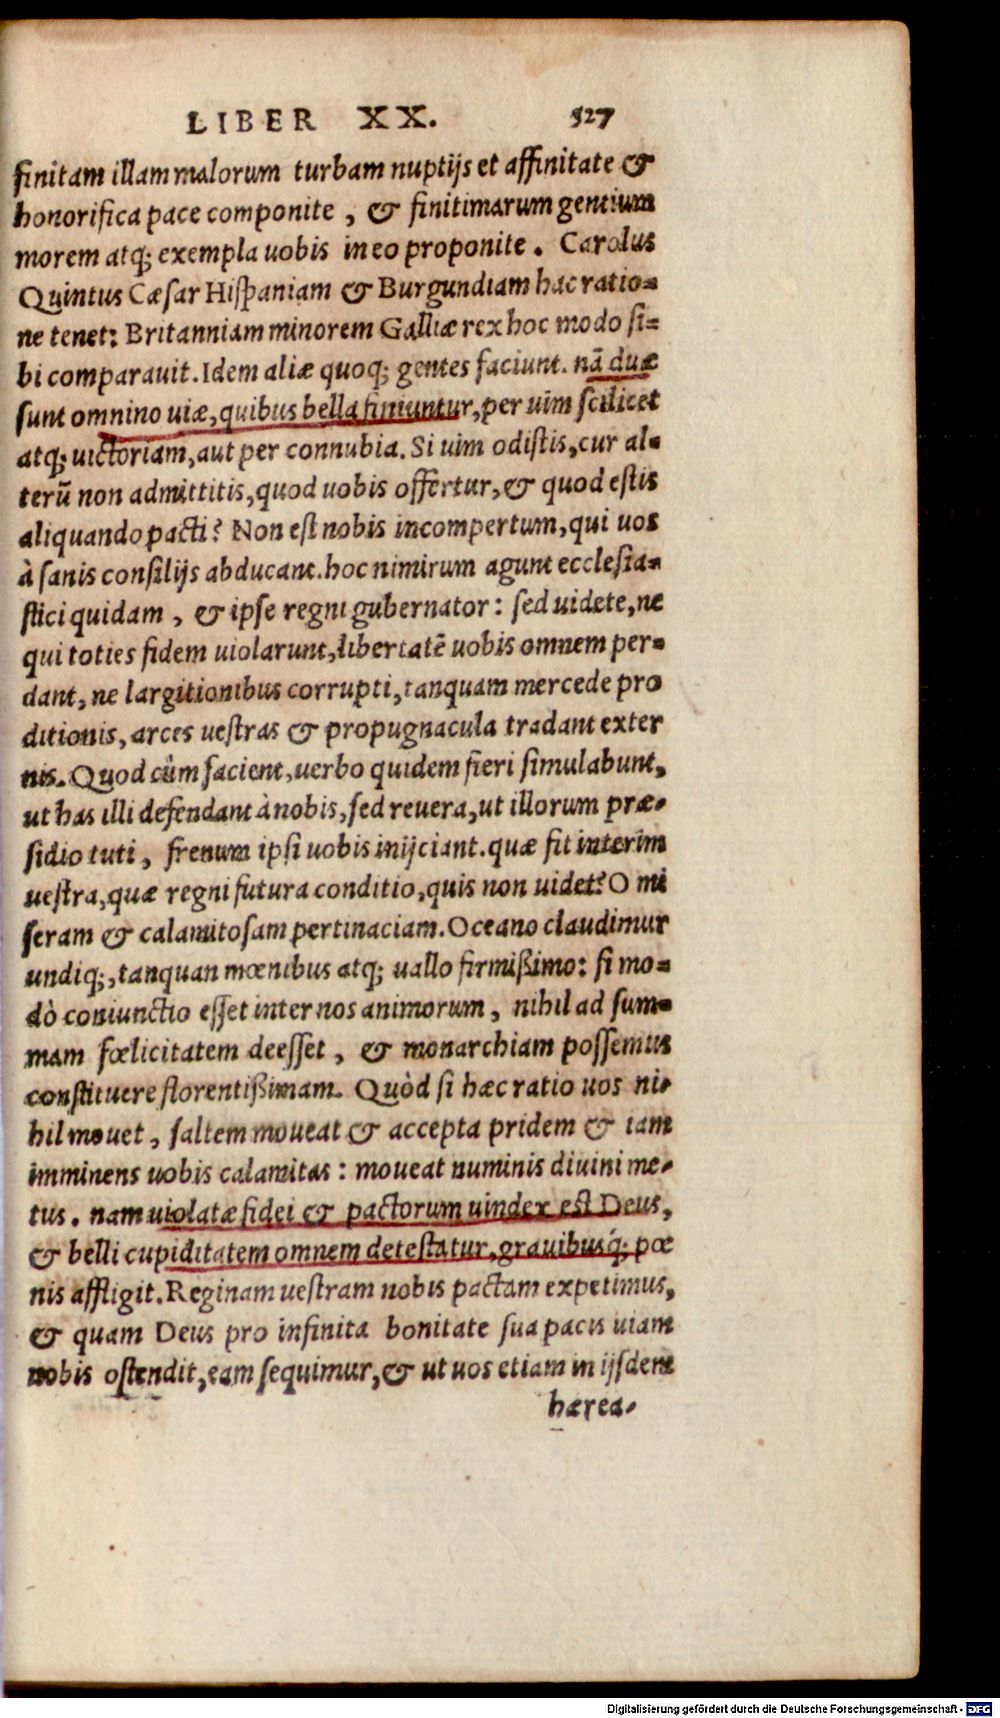 LIBER XX. 527
finitam illam malorum turbam nuptijs et affinitate &
honorifica pace componite, & finitimarum gentium
morem atq; exempla uobis in eo proponite. Carolus
Quintus Cæsar Hispaniam & Burgundiam hac ratio=
ne tenet: Britanniam minorem Galliæ rex hoc modo si=
bi comparauit. Idem aliæ quoq; gentes faciunt. nã duæ
sunt omnino uiæ, quibus bella finiuntur, per uim scilicet
atq; uictoriam, aut per connubia. Si uim odistis, cur al=
terũ non admittitis, quod uobis offertur, & quod estis
aliquando pacti? Non est nobis incompertum, qui uos
à sanis consilijs abducant. hoc nimirum agunt ecclesia=
stici quidam, & ipse regni gubernator: sed uidete, ne
qui toties fidem uiolarunt, libertatẽ uobis omnem per=
dant, ne largitionibus corrupti, tanquam mercede pro
ditionis, arces uestras & propugnacula tradant exter
nis. Quod cùm facient, uerbo quidem fieri simulabunt,
ut has illi defendant à nobis, sed reuera, ut illorum præ=
sidio tuti, frenum ipsi uobis inijciant. quæ sit interim
uestra, quæ regni futura conditio, quis non uidet? O mi
seram & calamitosam pertinaciam. Oceano claudimur
undiq;, tanquan mœnibus atq; uallo firmißimo: si mo=
dò coniunctio esset inter nos animorum, nihil ad sum=
mam fœlicitatem deesset, & monarchiam possemus
constituere florentißimam. Quòd si hæc ratio uos ni=
hil mouet, saltem moueat & accepta pridem & iam
imminens uobis calamitas: moueat numinis diuini me=
tus. nam uiolatæ fidei & pactorum uindex est Deus,
& belli cupiditatem omnem detestatur, grauibusq́; pœ
nis affligit. Reginam uestram nobis pactam expetimus,
& quam Deus pro infinita bonitate sua pacis uiam
nobis ostendit, eam sequimur, & ut uos etiam in ijsdem
hærea=
Digitalisierung gefördert durch die Deutsche Forschungsgemeinschaft - DFG